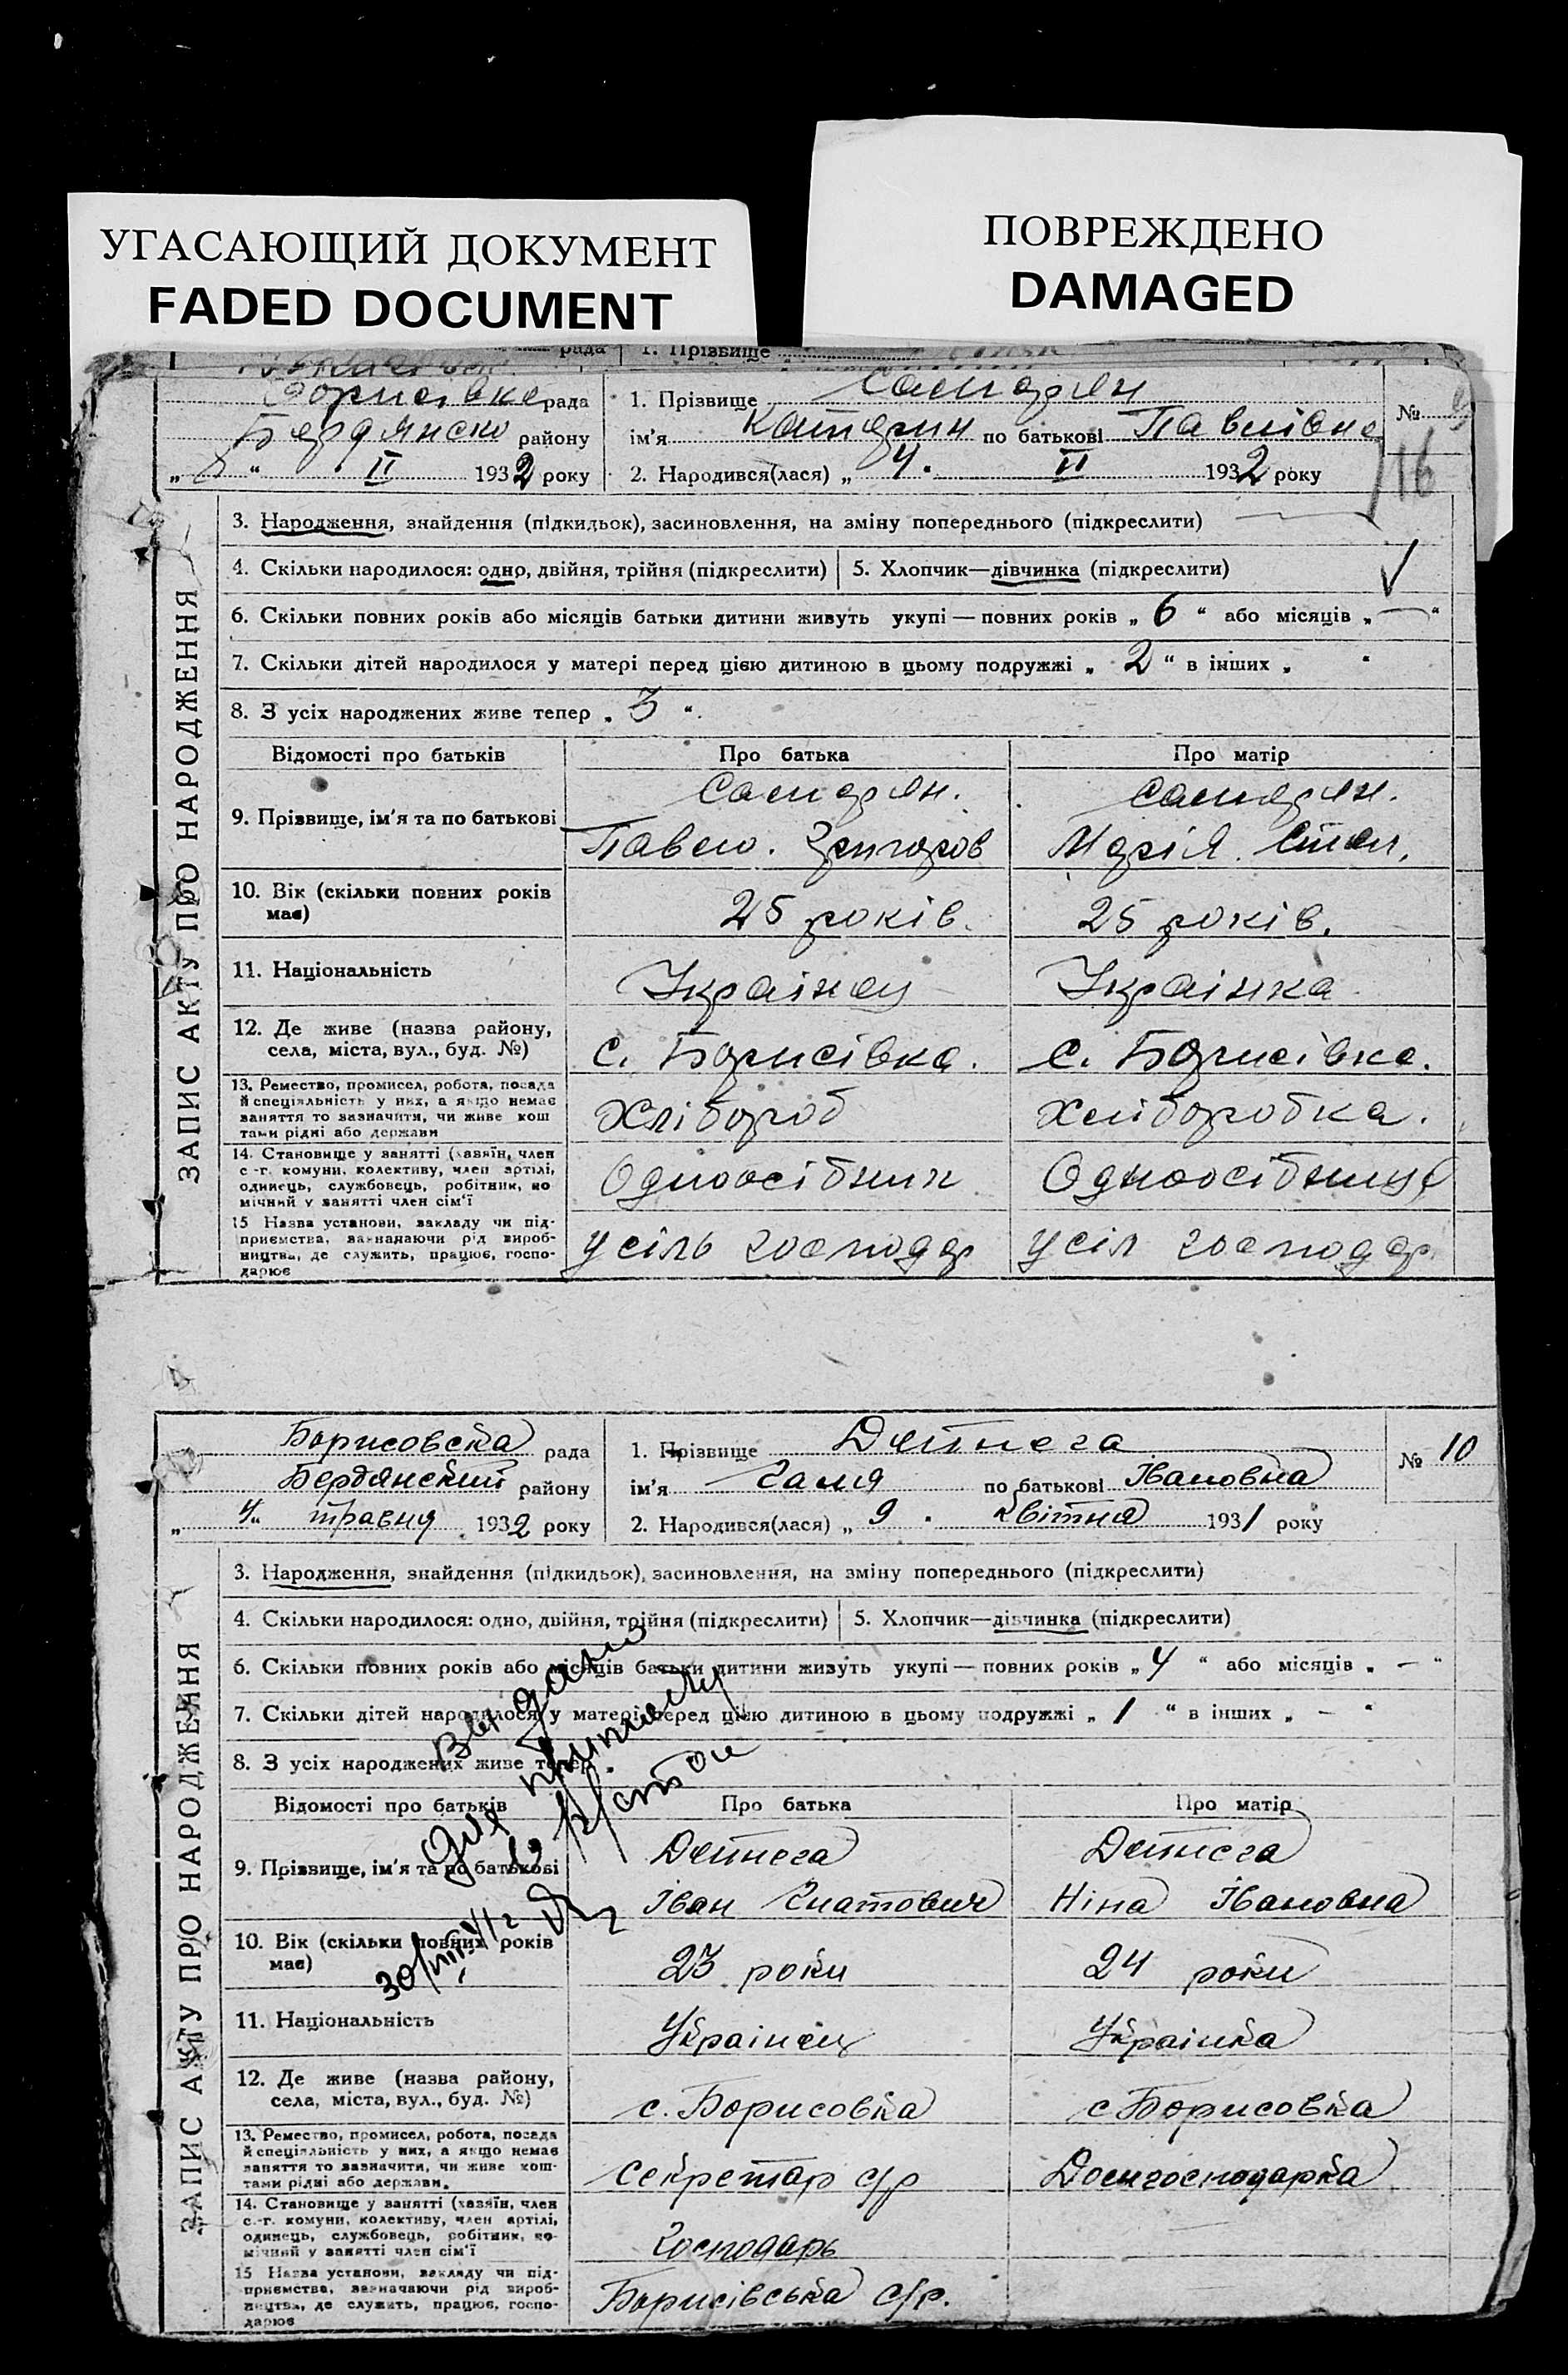 УГАСАЮЩИЙ ДОКУМЕНТ
FADED DOCUMENT
ПОВРЕЖДЕНО
DAMAGED
рада 1. Прізвище
Борисівка рада 1. Прізвище
Бердянско району ім'я Катерин по батькові Павлівна №
„ “ II 1932 року 2. Народився(лася) „ 4 “ II 1932 року 116
ЗАПИС АКТУ ПРО НАРОДЖЕННЯ
3. Народження, знайдення (підкидьок), засиновлення, на зміну попереднього (підкреслити)
4. Скільки народилося: одно, двійня, трійня (підкреслити) 5. Хлопчик—дівчинка (підкреслити)
6. Скільки повних років або місяців батьки дитини живуть укупі — повних років „ 6 “ або місяців „ — “
7. Скільки дітей народилося у матері перед цією дитиною в цьому подружжі „ 2 “ в інших „ “
8. З усіх народжених живе тепер „ 3 “.
Відомості про батьків Про батька Про матір
9. Прізвище, ім'я та по батькові
Павло. Григоров Марія. Степ.
10. Вік (скільки повних років має) 25 років. 25 років.
11. Національність Українец Українка
12. Де живе (назва району, села, міста, вул., буд. №) с. Борисівка. с. Борисівка.
13. Ремество, промисел, робота, посада й спеціяльність у них, а якщо немає заняття то зазначити, чи живе коштами рідні або держави Хлібороб Хліборобка.
14. Становище у занятті (хазяїн, член с.-г. комуни, колективу, член артілі, одинець, службовець, робітник, помічний у занятті член сім'ї Одноосібник Одноосібниця
15 Назва установи, закладу чи підприємства, зазначаючи рід виробництва, де служить, працює, господарює у сіль господар у сіл господар
Борисовска рада 1. Прізвище Детнега № 10
Бердянский району ім'я Галя по батькові Івановна
„ 4 “ травня 1932 року 2. Народився(лася) „ 9 “ квітня 1931 року
ЗАПИС АКТУ ПРО НАРОДЖЕННЯ
3. Народження, знайдення (підкидьок), засиновлення, на зміну попереднього (підкреслити)
4. Скільки народилося: одно, двійня, трійня (підкреслити) 5. Хлопчик—дівчинка (підкреслити)
6. Скільки повних років або місяців батьки дитини живуть укупі — повних років „ 4 “ або місяців „ — “
7. Скільки дітей народилося у матері перед цією дитиною в цьому подружжі „ 1 “ в інших „ — “
8. З усіх народжених живе тепер „
Выдано
для
Відомості про батьків Про батька Про матір
9. Прізвище, ім'я та по батькові Детнега Детнега
Іван Гнатович Ніна Івановна
10. Вік (скільки повних років має) 23 роки 24 роки
11. Національність Українец Українка
12. Де живе (назва району, села, міста, вул., буд. №) с. Борисовка с Борисовка
13. Ремество, промисел, робота, посада й спеціяльність у них, а якщо немає заняття то зазначити, чи живе коштами рідні або держави. Секретар с/р Домгосподарка
14. Становище у занятті (хазяїн, член с.-г. комуни, колективу, член артілі, одинець, службовець, робітник, помічний у занятті член сім'ї Господарь
15 Назва установи, закладу чи підприємства, зазначаючи рід виробництва, де служить, працює, господарює Борисівська с/р.